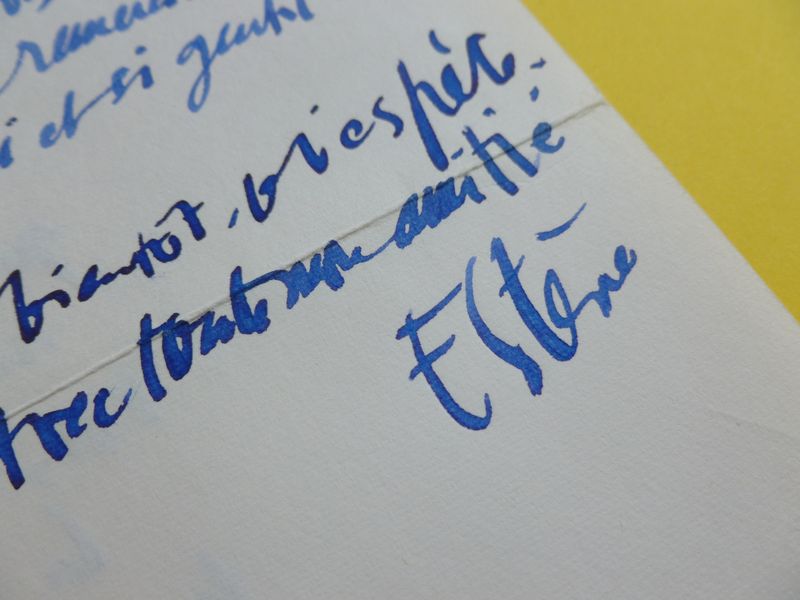 i et si gentil
bientôt, j'espère.
Avec toute mon amitié
Estène